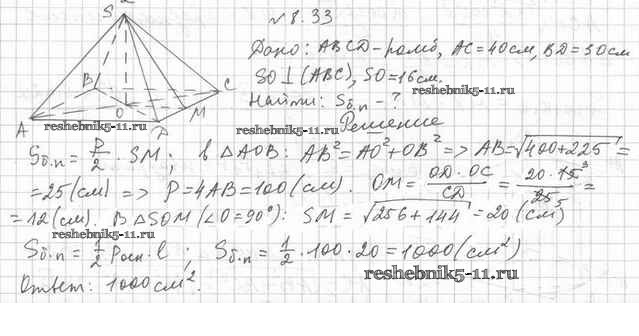 S
N 8.33
Дано: ABCD-ромб, AC=40см, BD=30см
SO⊥(ABC), SO=16см.
B
C
Найти: Sб.п-?
O
M
A
D
reshebnik5-11.ru
reshebnik5-11.ru
Решение
Sб.п = P/2 · SM; в ΔAOB: AB²=AO²+OB² => AB=√400+225 =
=25(см) => P=4AB=100(см). OM = OD·OC/CD = 20·15³/25₅ =
=12(см). В ΔSOM (∠O=90°): SM = √256+144 = 20 (см)
reshebnik5-11.ru
Sб.п = 1/2 Pосн·l ; Sб.п = 1/2 · 100 · 20 = 1000 (см²)
Ответ: 1000см².
reshebnik5-11.ru